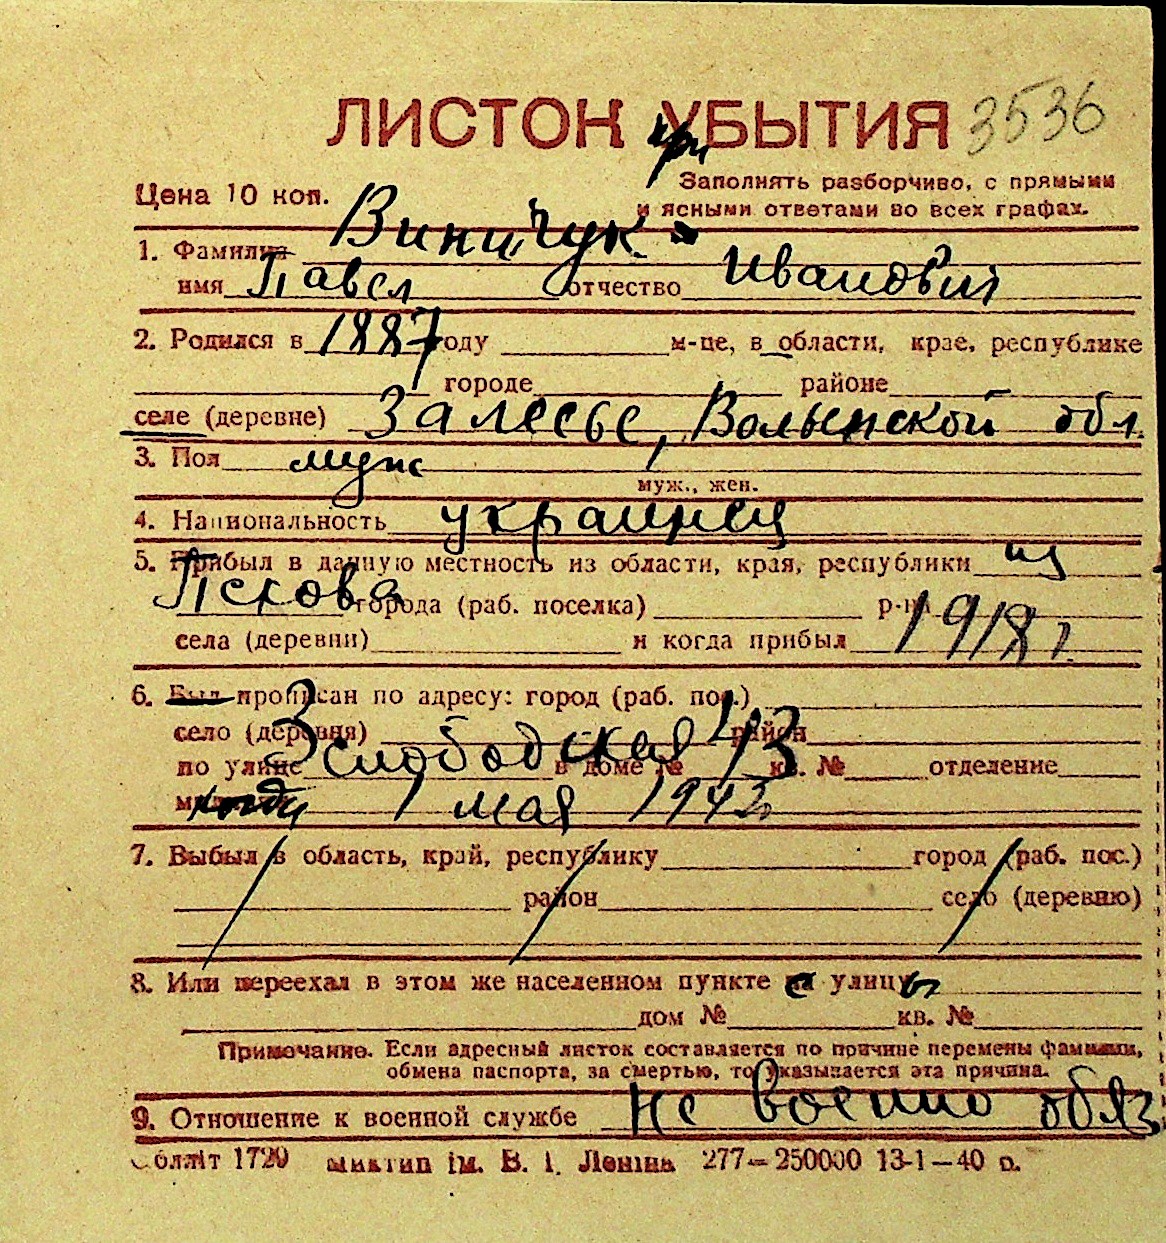 ЛИСТОК УБЫТИЯ 3536
при
Цена 10 коп. Заполнять разборчиво, с прямыми
и ясными ответами во всех графах.
1. Фамилия Виничук
имя Павел отчество Иванович
2. Родился в 1887 году м-це, в области, крае, республике
городе районе
селе (деревне) Залесье, Волынской обл.
3. Пол муж
муж., жен.
4. Национальность украинец
5. Прибыл в данную местность из области, края, республики из
Пскова города (раб. поселка) р-на
села (деревни) и когда прибыл 1918 г.
6. Был прописан по адресу: город (раб. пос.)
село (деревня) район
по улице 3 слободская в доме № 43 кв. № отделение
когда 1 мая 1942
7. Выбыл в область, край, республику город (раб. пос.)
район село (деревню)
8. Или переехал в этом же населенном пункте с улицы
дом № кв. №
Примечание. Если адресный листок составляется по причине перемены фамилии,
обмена паспорта, за смертью, то указывается эта причина.
9. Отношение к военной службе не военно обяз
Обллiт 1720 iм. В. I. Ленiна 277—250000 13-1—40 р.